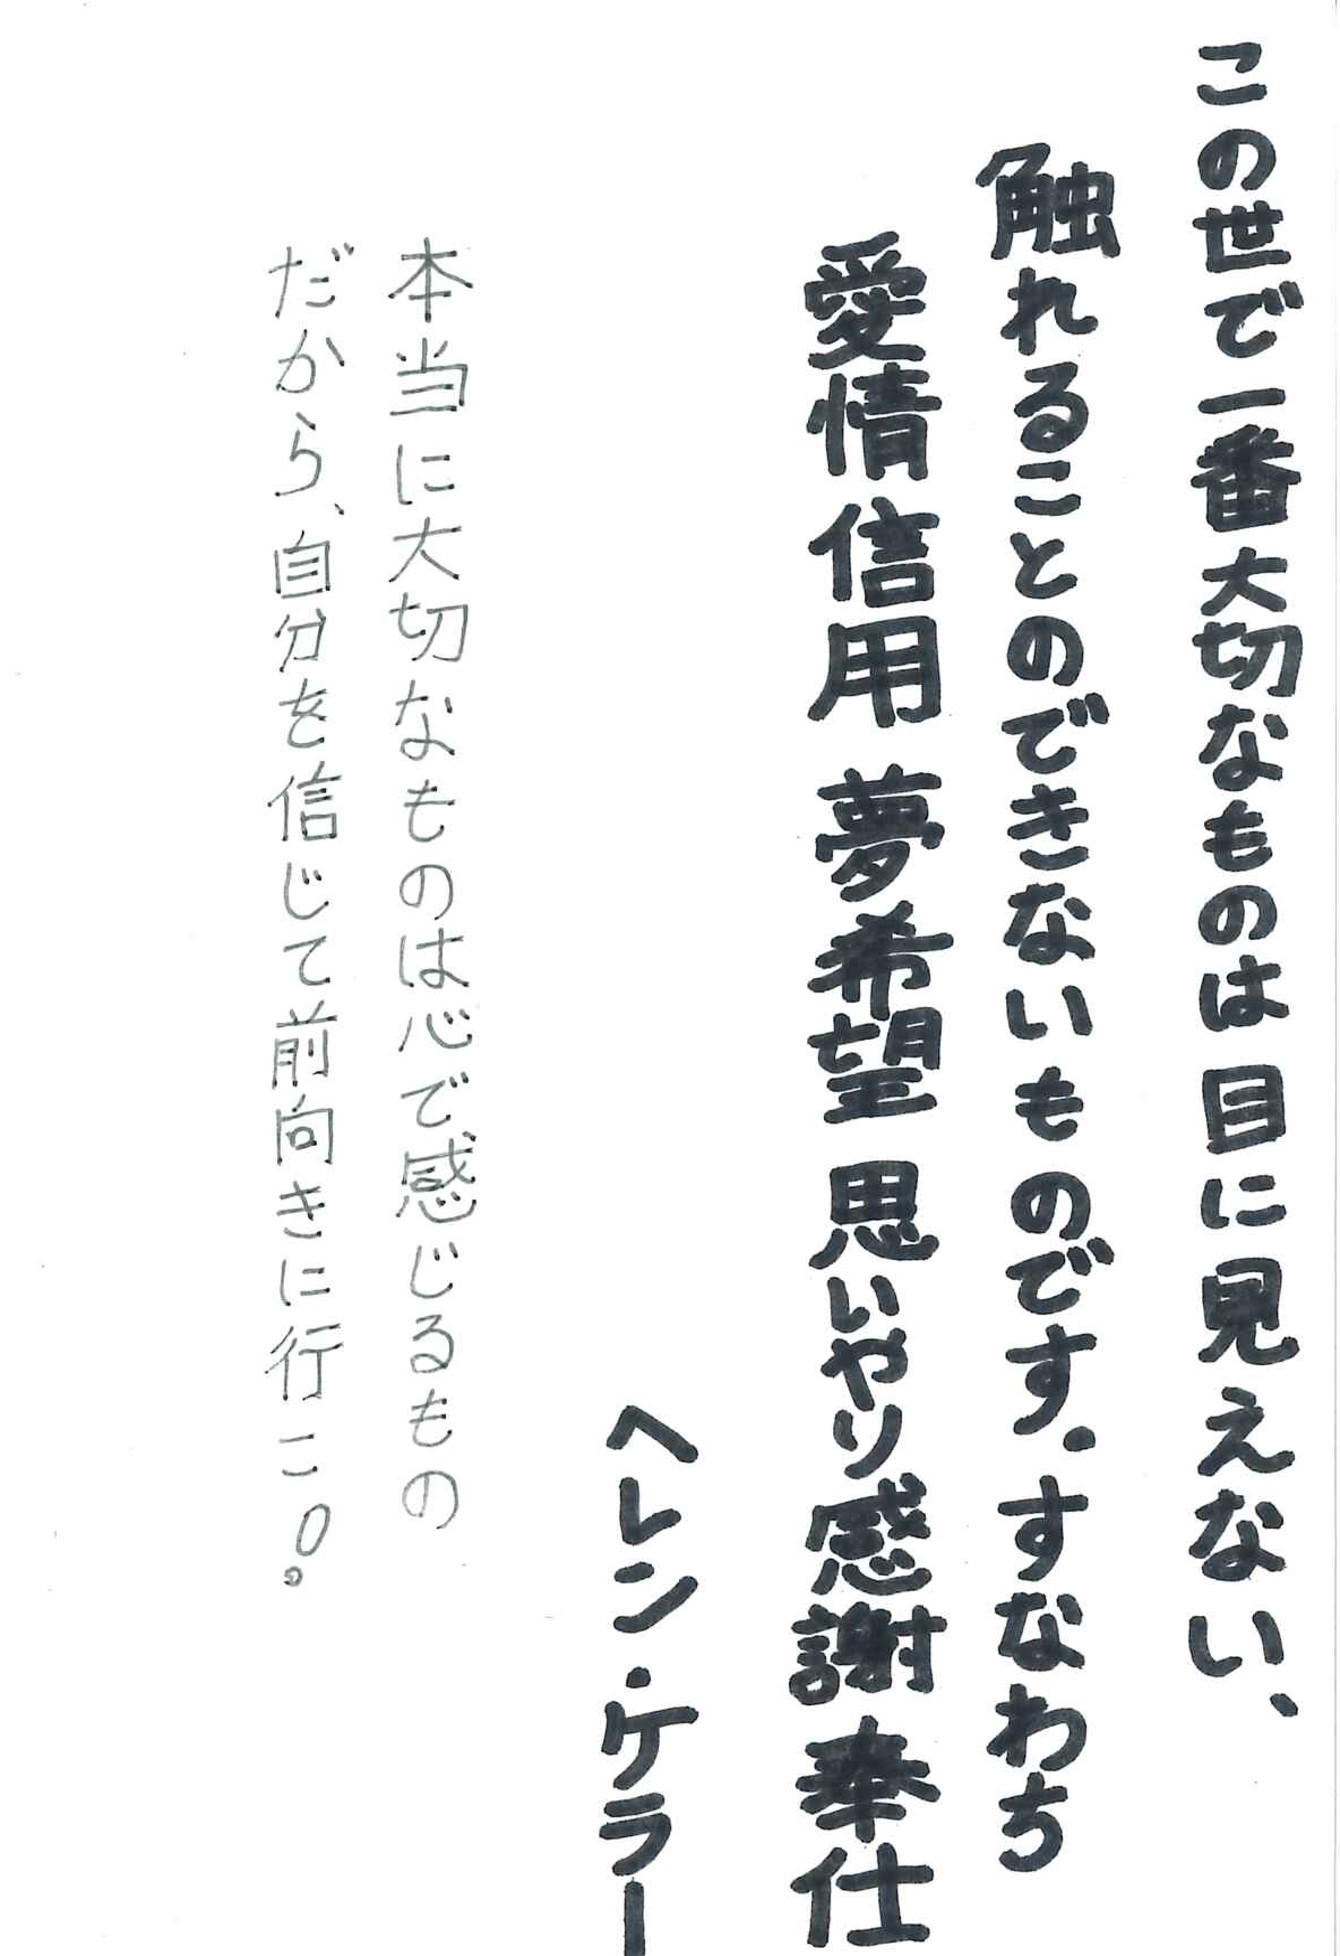 この世で一番大切なものは目に見えない、
触れることのできないものです．すなわち
愛情 信用 夢希望 思いやり感謝奉仕
ヘレン・ケラー
本当に大切なものは心で感じるもの
だから、自分を信じて前向きに行こう。